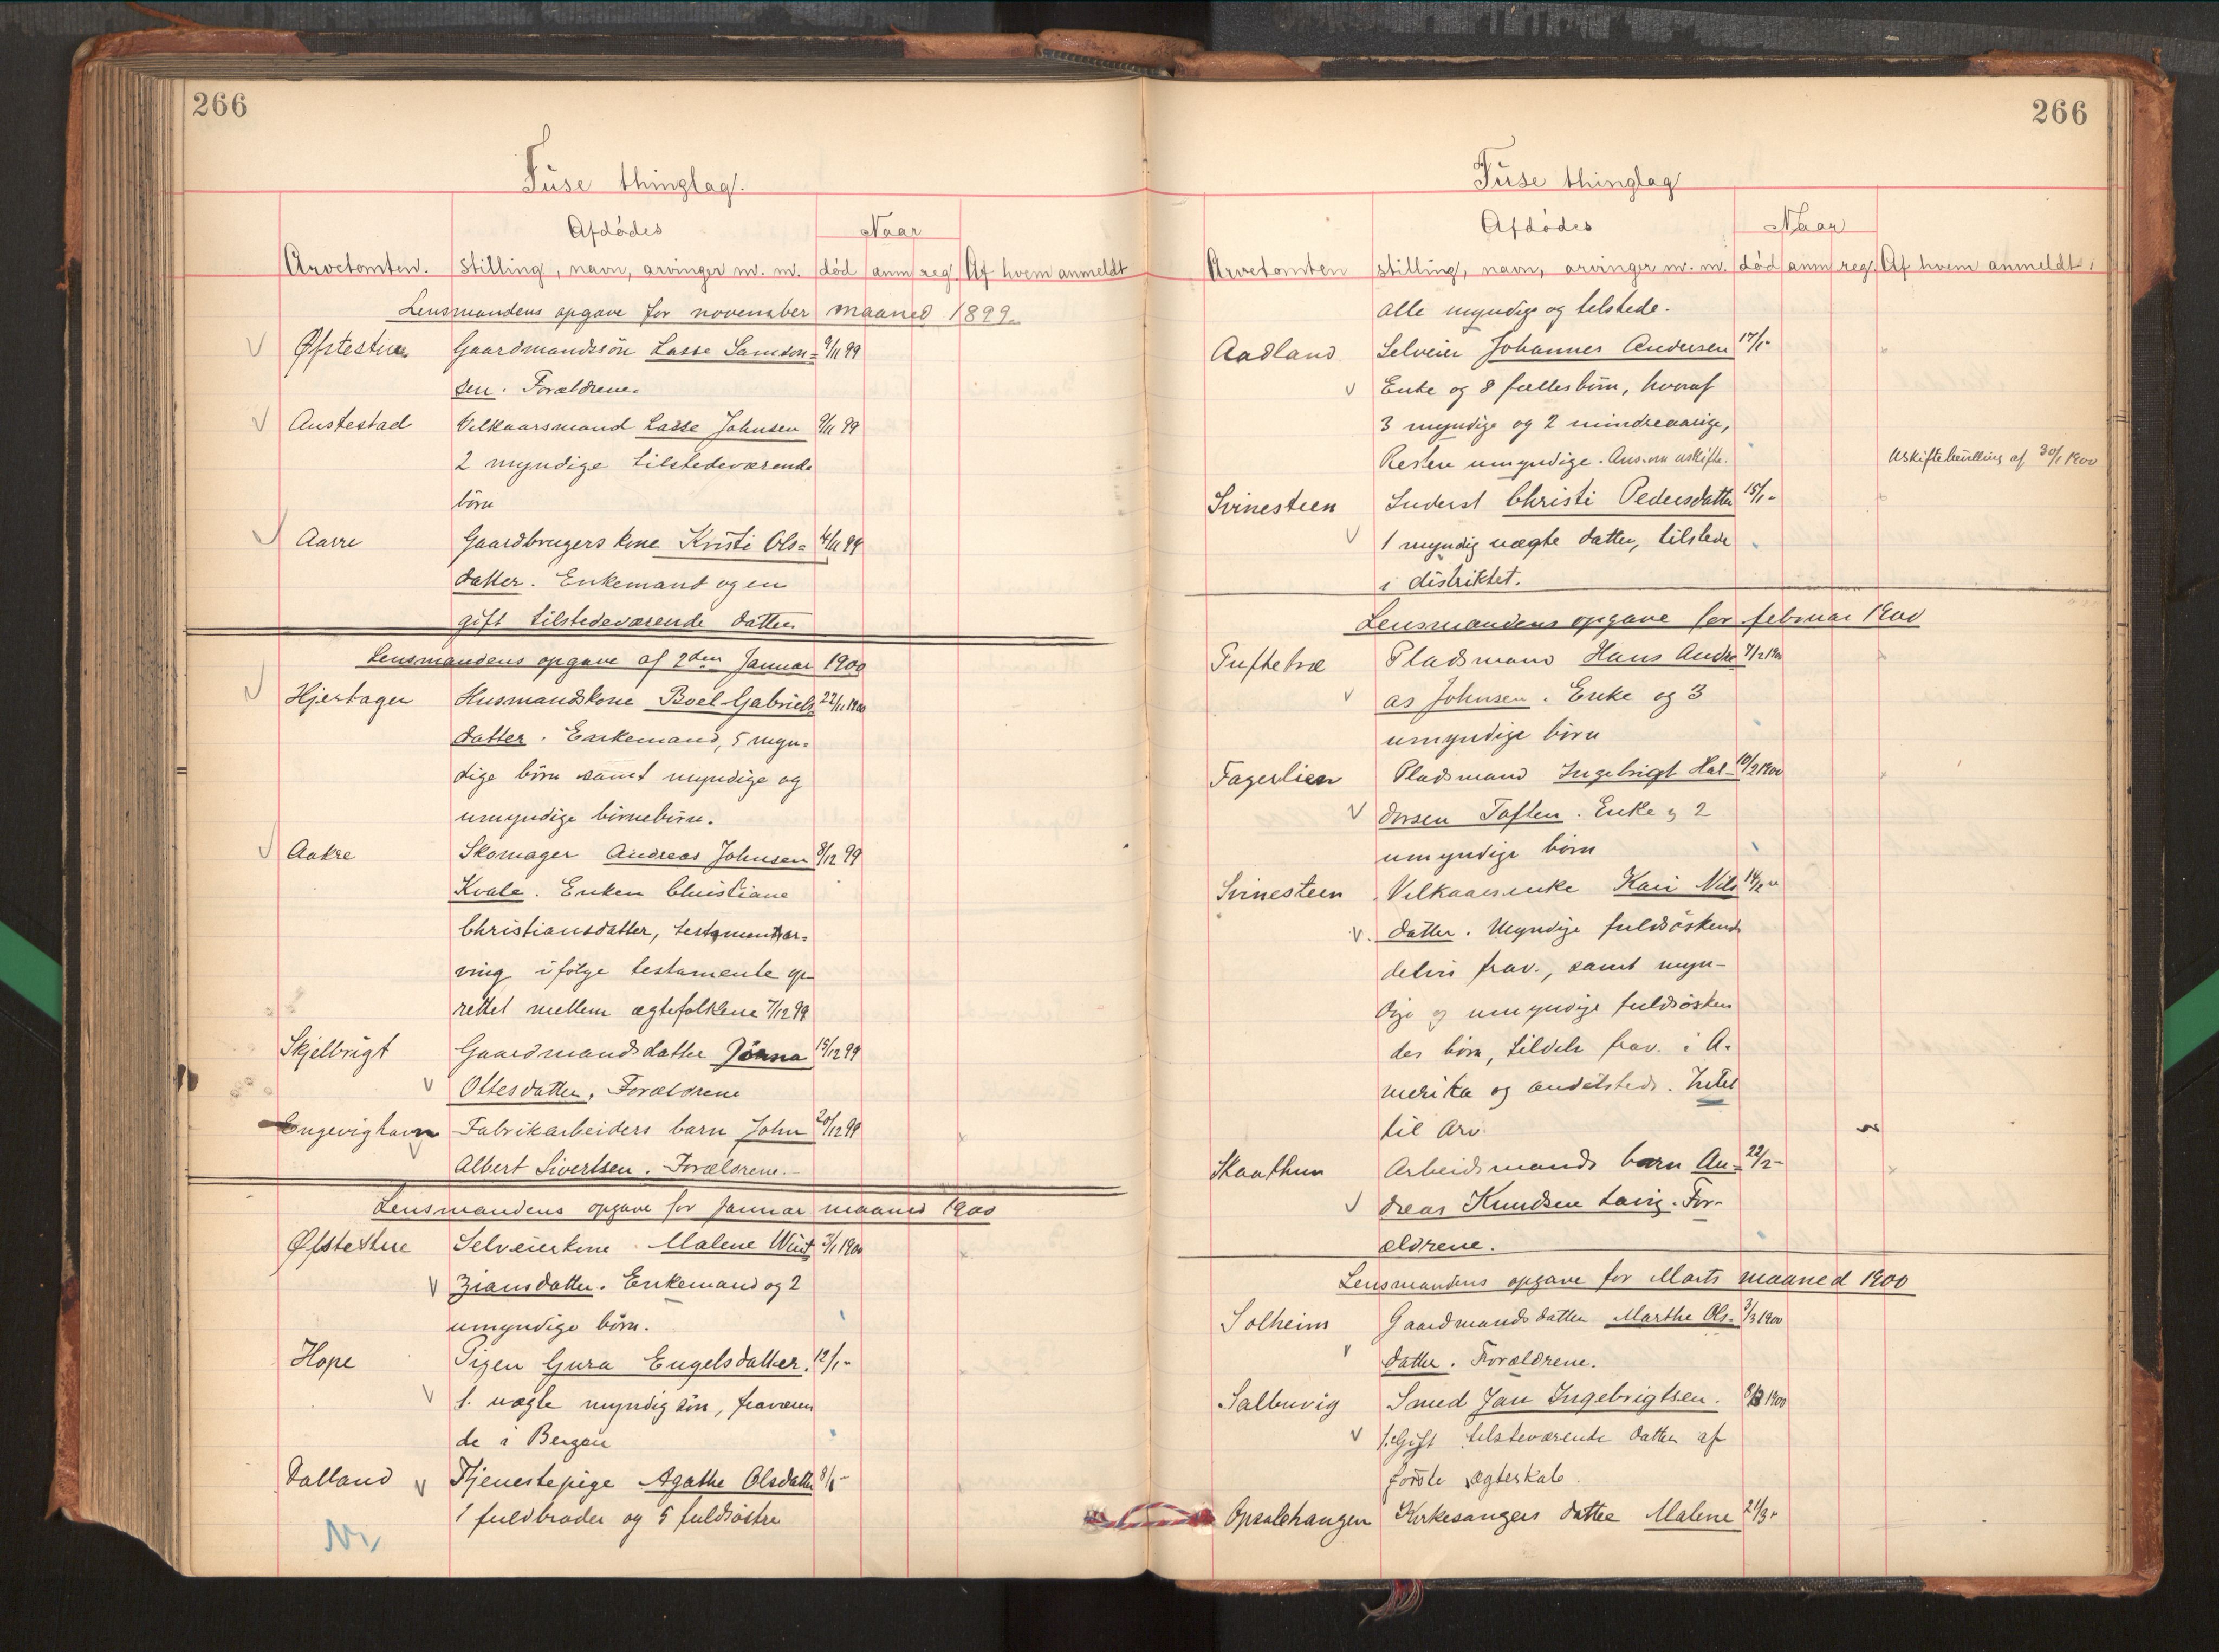 266
Fuse thinglag.
Afdødes
Naar
Arvetomten.
Stilling, navn, arvinger m. m.
død
anm
reg.
Af hvem anmeldt
Lensmandens opgave for november maaned 1899.
Gaardmandssøn Lasse Samson= 9/11 99
sen. Forældrene.
Austestad Vilkaarsmand Lasse Johnsen 9/11 99
2 myndige tilstedeværende
børn
Gaardbrugers kone Kristi Ols=
datter. Enkemand og en
gift tilstedeværende datter
Lensmandens opgave af 2den Januar 1900
Hjertager Husmandskone Boel Gabriels 22/11 1900
datter. Enkemand, 5 myn=
dige børn samt myndige og
umyndige børnebørn.
Aakre Skomager Andreas Johnsen 8/12 99
Kvale. Enken Christiane
Christiansdatter, testamentsar=
ving ifølge testamente op
rettet mellem ægtefolkene 7/12 99
Skjelbrigt Gaardmandsdatter 15/12 99
Ottesdatter, Forældrene
Engevighavn Fabrikarbeiders barn John 20/12 99
Albert Sivertsen. Forældrene.
Lensmandens opgave for Januar maaned 1900
Selveierkone Malene Wint
ziansdatter. Enkemand og 2
umyndige børn.
Hope Pigen Gura Engelsdatter. 12/1 "
1. uægte myndig søn, fraværen
de i Bergen
Dalland Tjenestepige Agathe Olsdatter 8/1 "
1 fuldbroder og 5 fuldsøstre
266
Fuse thinglag
Afdødes
Naar
Arvetomten
stilling, navn, arvinger m. m.
død
anm
reg.
Af hvem anmeldt.
alle myndige og tilstede.
Aadland Selveier Johannes Andersen 17/1 "
Enke og 8 fællesbørn, hvoraf
3 myndige og 2 mindreaarige,
Resten umyndige. Ans. om uskifte. Uskiftebevilling af 30/1 1900
Svinesteen Inderst Christi Pedersdatter 15/1 "
1 myndig uægte datter, tilstede
i distriktet.
Lensmandens opgave for februar 1900
Tuftebræ Pladsmand Hans Andre
as Johnsen. Enke og 3
umyndige børn
Fagerlien Pladsmand Ingebrigt Hal- 10/2 1900
dorsen Toften. Enke og 2
umyndige børn
Svinesteen Vilkaarsenke Kari Nils 14/2 "
datter. Myndige fuldsøskende
delvis frav., samt myn-
dige og umyndige fuldsøsken
des børn, tildels frav. i A-
merika og andetsteds. Intet
til Arv.
Skaathun Arbeidsmands barn An= 22/2 "
dreas Knudsen Lavig. For-
ældrene.
Lensmandens opgave for Marts maaned 1900
Solheim Gaardmandsdatter Marthe Ols= 3/3 1900
datter. Forældrene.
Salbuvig Smed Jan Ingebrigtsen. 8/3 1900
1. Gift tilsteværende datter af
første ægteskab.
Opsalehaugen Kirkesangers datter Malene 21/3 "